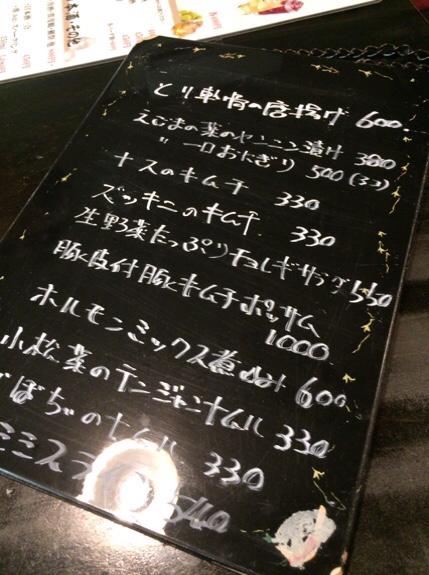 とり軟骨の唐揚げ 600.
えごまの葉のヤンニン漬け 300
〃 一口おにぎり 500(3コ)
ナスのキムチ 330
ズッキーニのキムチ 330
生野菜たっぷりチョレギサラダ 550
豚皮付豚とキムチポッサム
1000
ホルモンミックス煮込み 600
小松菜のテンジャンナムル 330
ぼちゃのナムル 330
ミミスライス 540